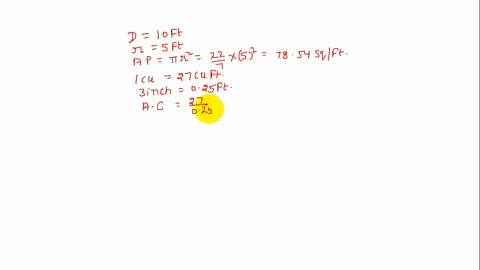 D = 10Ft
r = 5Ft
A P = πr² = 22/7 x (5)² = 78.54 Sq/ft.
1 cu = 27 cu Ft.
3inch = 0.25Ft.
A.C = 27/0.25